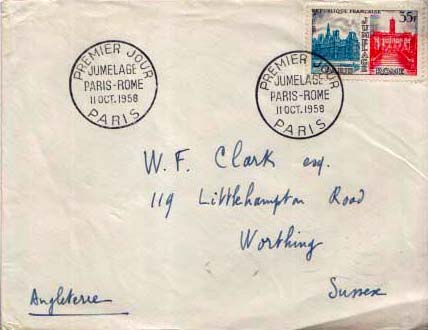 REPUBLIQUE FRANÇAISE
35F
JUMELAGE
ROME
PREMIER JOUR
JUMELAGE
PARIS-ROME
11 OCT. 1958
PARIS
PREMIER JOUR
JUMELAGE
PARIS-ROME
11 OCT. 1958
PARIS
W. F. Clark esq.
119 Littlehampton Road
Worthing
Sussex
Angleterre